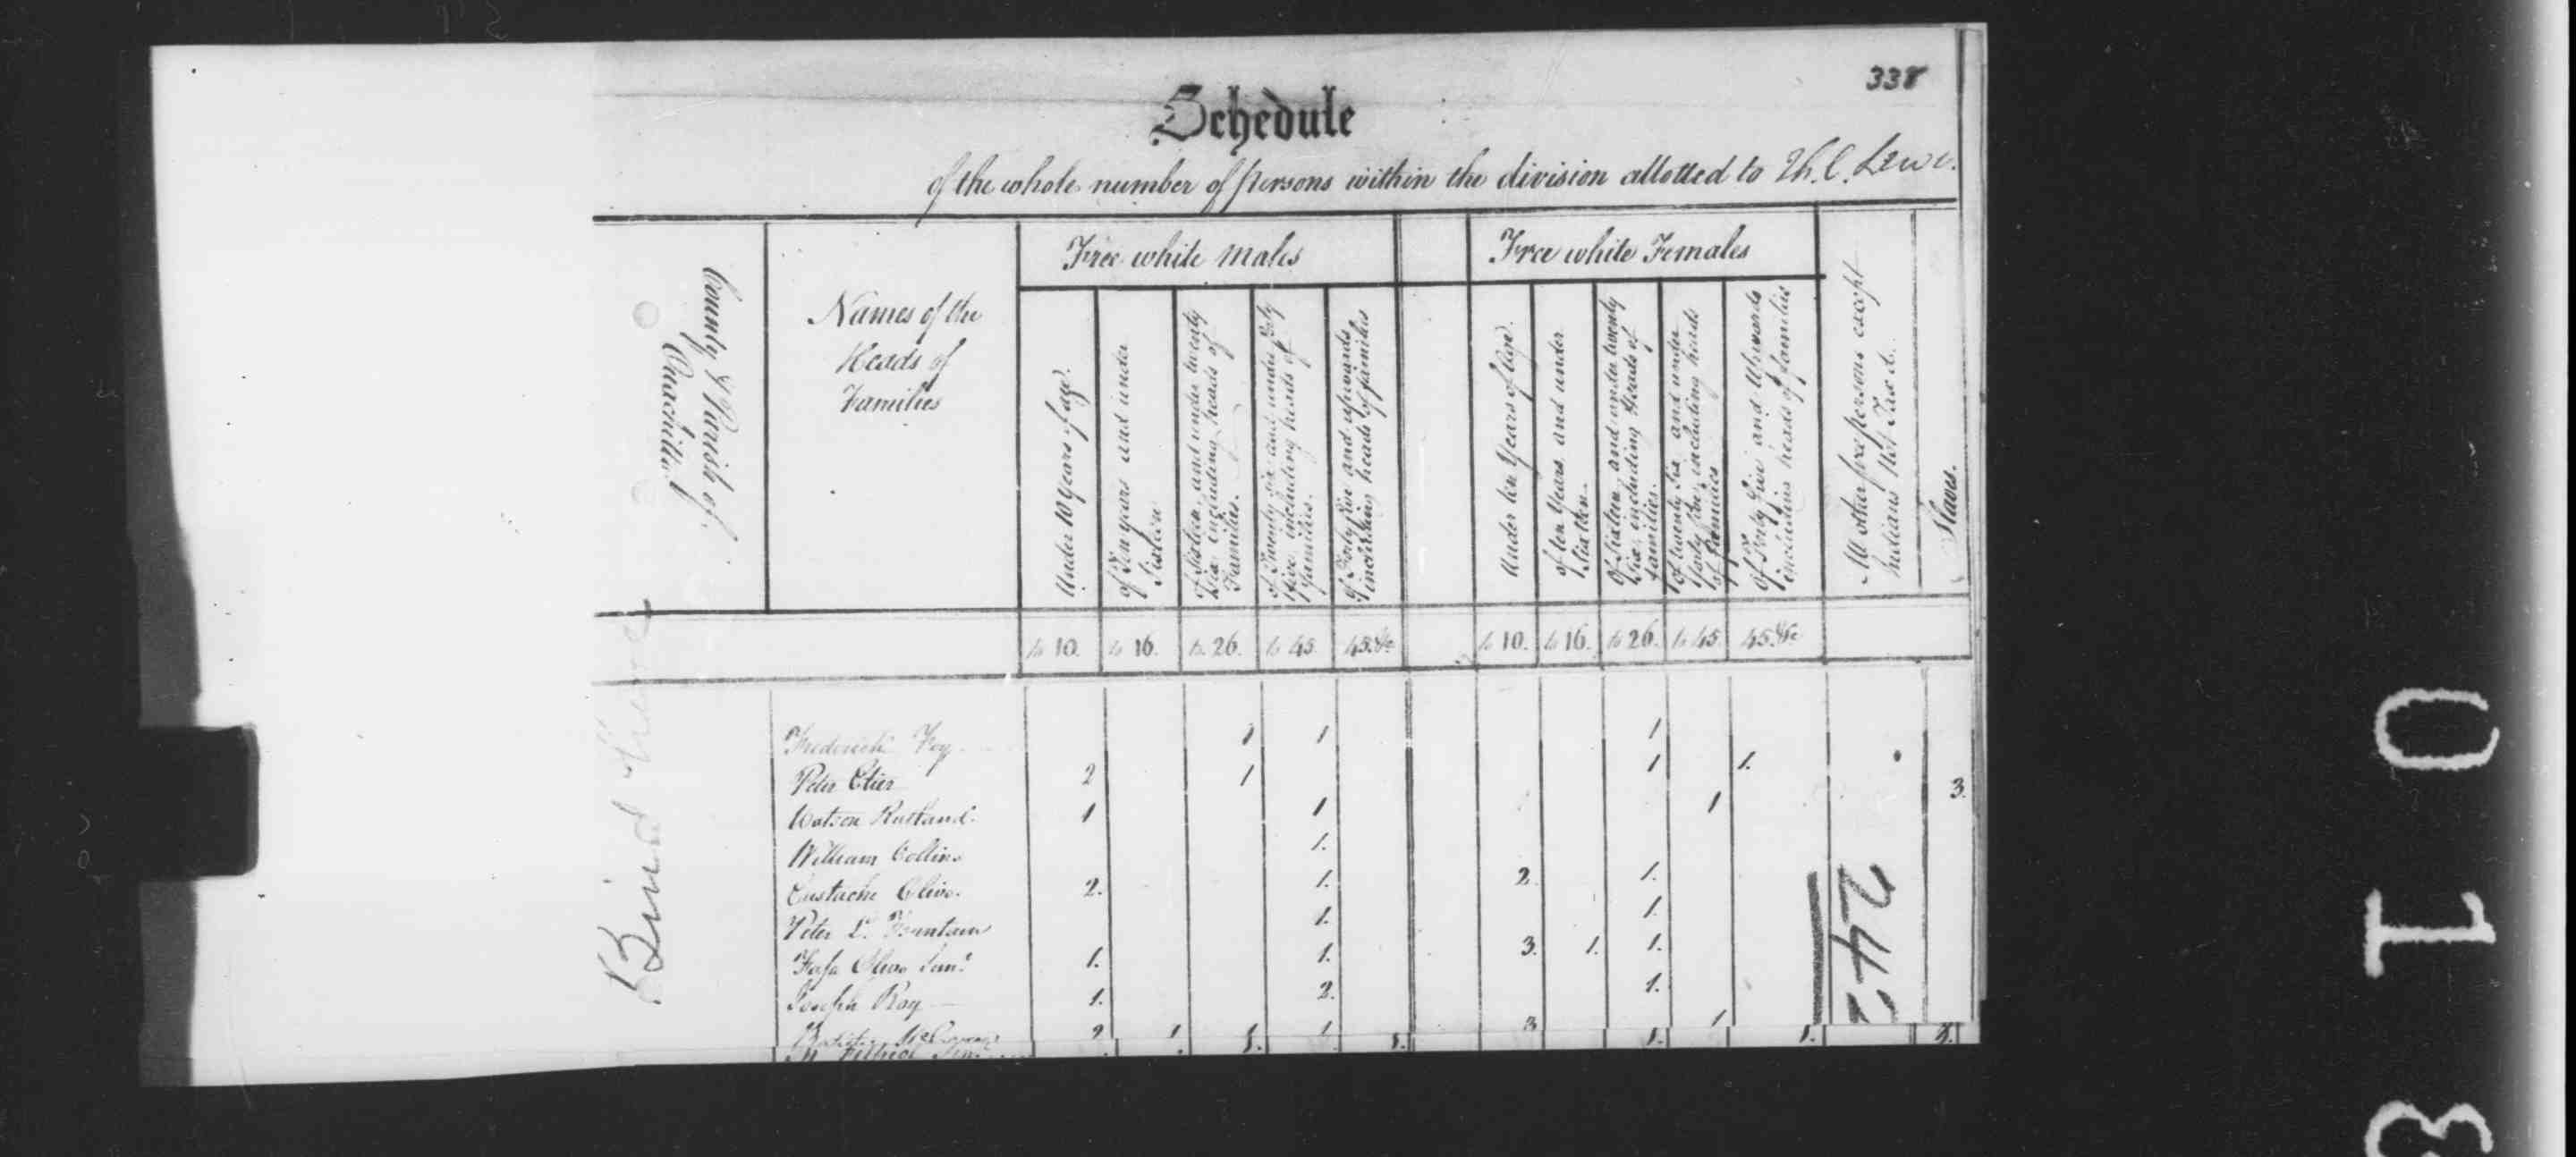 338
Schedule
of the whole number of persons within the division allotted to Th. C. Lewis.
County & Parish of Ouachitta
Names of the Heads of Families
Free white Males
Free white Females
Under 10 Years of age.
of Ten years and under Sixteen
of Sixteen and under twenty Six including heads of Families.
of Twenty six and under forty five including heads of families.
of Forty five and upwards including heads of families
Under ten Years of Age.
of ten Years and under Sixteen.
Of Sixteen and under twenty Six including Heads of families.
Of twenty Six and under forty five including heads of Families
Of Forty five and Upwards including heads of families
All other free persons except Indians not Taxed.
Slaves.
to 10. to 16. to 26. to 45 45.&c to 10. to 16. to 26. to 45 45.&c
Frederick Foy 1 1 1
Peter Etier 2 1 1 1.
Watson Rutland. 1 1 1 3.
William Collins 1.
Eustache Olivo. 2. 1. 2. 1.
Peter L. Fountain 1. 1.
Olivo 1. 1. 3. 1. 1.
Joseph Roy 1. 2. 1.
2 1 1 3 1
1. 1. 1. 1. 1.
242
Bind
0
1
3